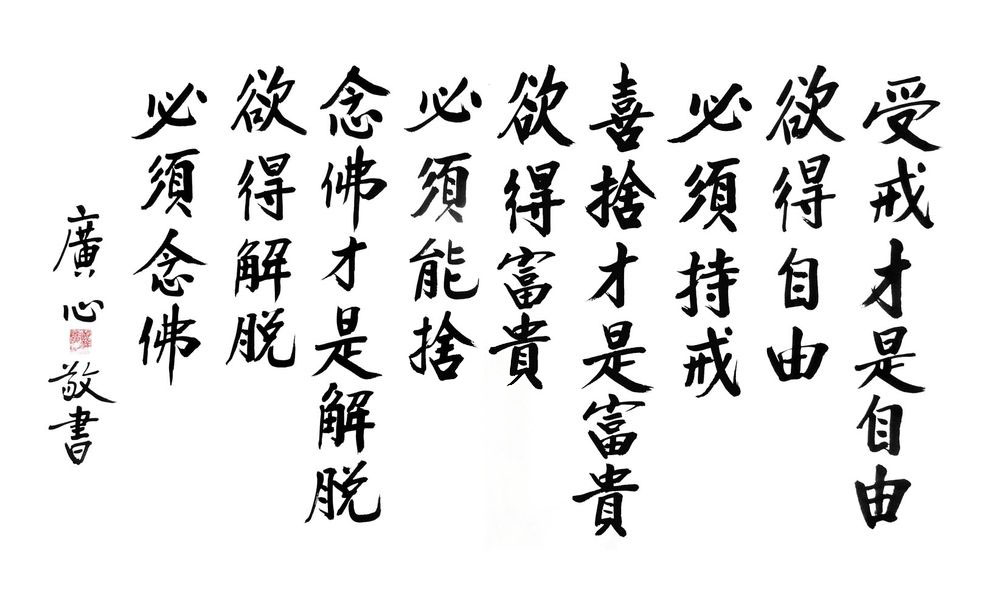 受戒才是自由
欲得自由
必須持戒
喜捨才是富貴
欲得富貴
必須能捨
念佛才是解脱
欲得解脱
必須念佛
廣心敬書